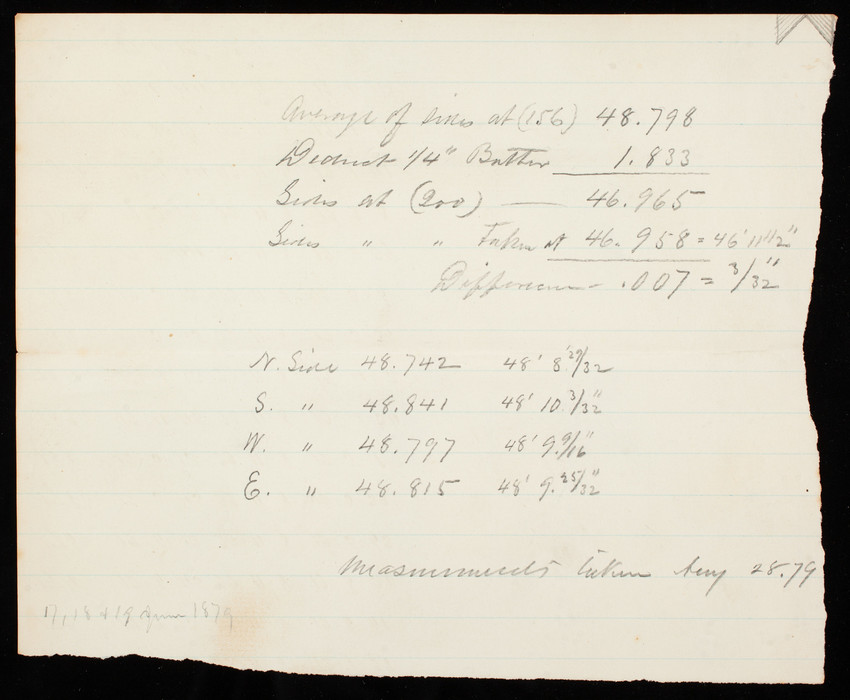 Average of sides at (156) 48.798
Deduct 1/4" Batter 1.833
Sides at (200) — 46.965
Sides " " Taken at 46.958 = 46' 11 1/2"
Difference - .007 = 3/32"
N. Side 48.742 48' 8 29/32
S. " 48.841 48' 10 3/32"
W. " 48.797 48' 9 9/16"
E. " 48.815 48' 9 25/32"
Measurements taken Aug 28.79
17, 18 & 19 June 1879